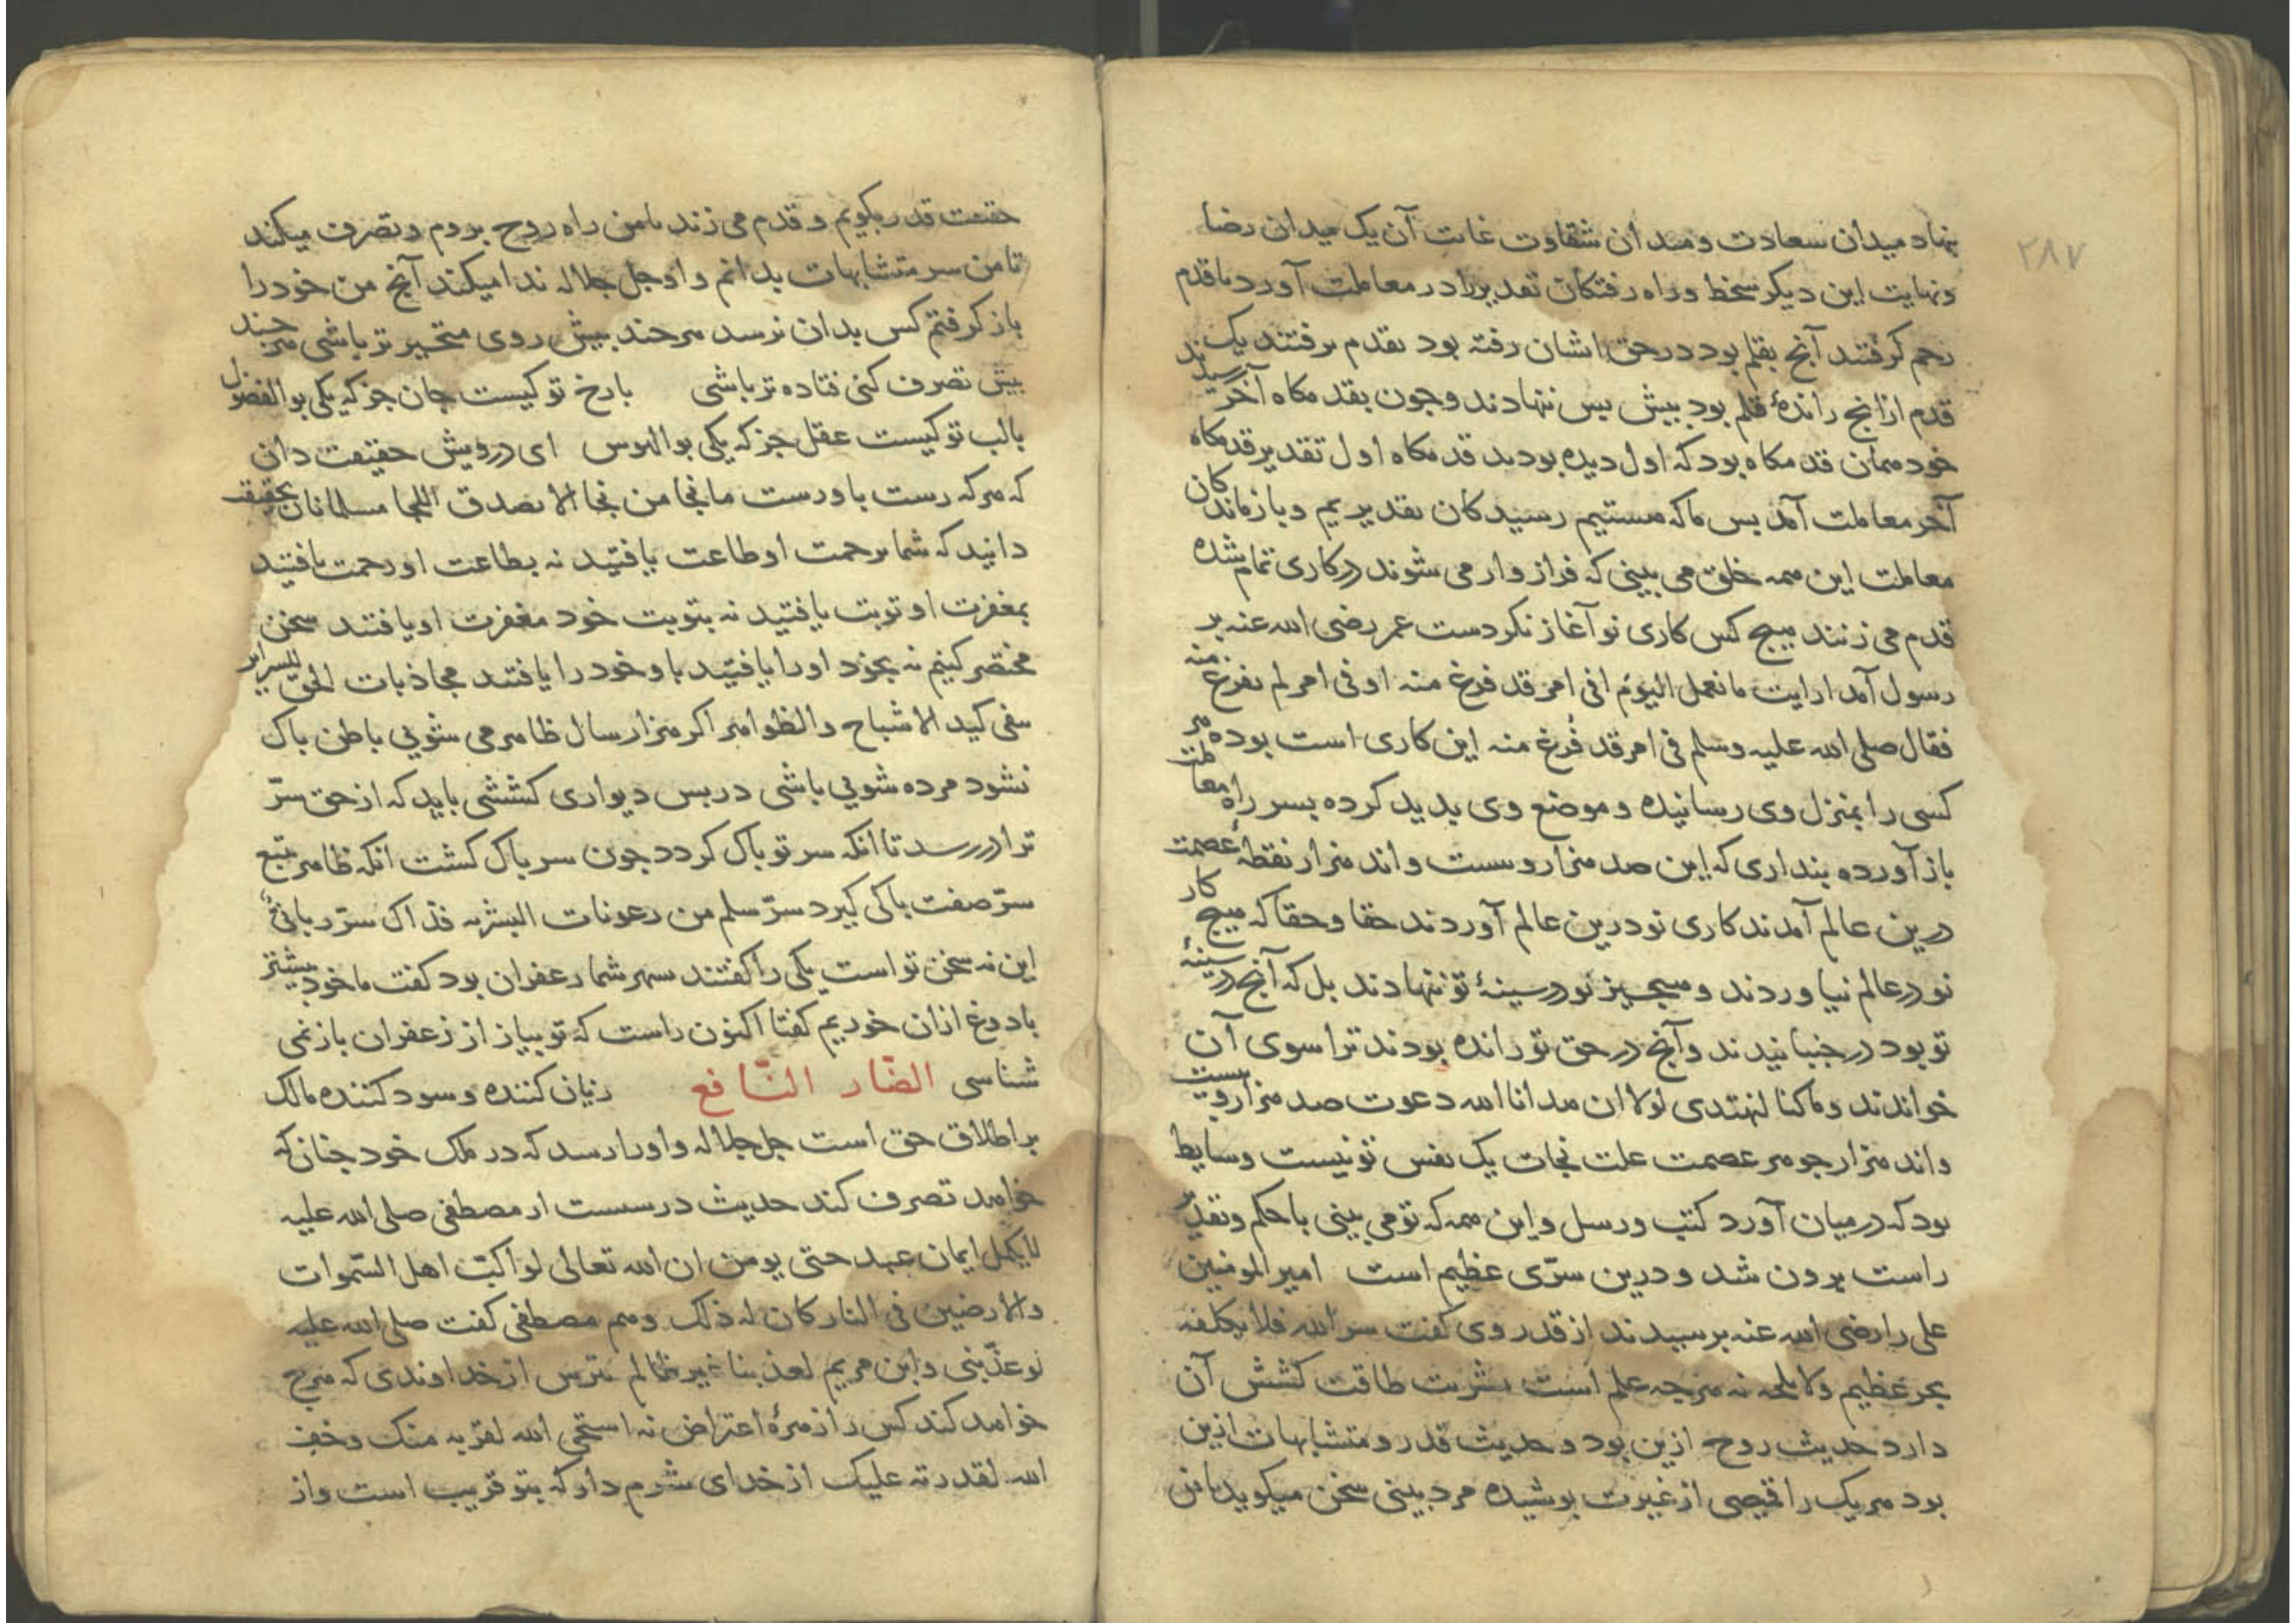 ۲۸۷
نهاد میدان سعادت و میدان شقاوت غایت آن یک میدان رضا
ونهایت این دیکر سخط وراه رفتکان تقدیر را در معاملت آورد تا قدم
زحم کرفتند آنج بقلم بود در حق ایشان رفته بود بقدم برفتند یک
قدم ازانج راندهٔ قلم بود بیش بس ننهادند وجون بقدمکاه آخر رسیدند
خود همان قدمکاه بود که اول دیده بودند قدمکاه اول تقدیر قدمکاه
آخر معاملت آمد بس ما که هستیم رسیدکان تقدیریم و بازماندکان
معاملت این همه خلق می بینی که فراز وار می شوند در کاری تمام شده
قدم می زنند هیج کس کاری نو آغاز نکردست عمر رضی الله عنه بر
رسول آمد ارایت ما نعمل الیوم افی امر قد فرغ منه او فی امر لم یفرغ منه
فقال صلی الله علیه وسلم فی امر قد فُرغ منه این کاری است بوده هر
کسی را بمنزل وی رسانیده و موضع وی بدید کرده بسر راه معاملت
باز آورده بنداری که این صد هزار و بیست و اند هزار نقطهٔ عصمت
درین عالم آمدند کاری نو درین عالم آوردند حقا وحقا که هیج کار
نو در عالم نیاوردند و هیجیز نو در سینهٔ تو ننهادند بل که آنج در سینهٔ
تو بود در جنبانیدند وآنج در حق تو رانده بودند ترا سوی آن
خواندند وماکنا لنهتدی لولا ان هدانا الله دعوت صد هزار و بیست
واند هزار جوهر عصمت علت نجات یک نفس تو نیست وسایط
بود که در میان آورد کتب ورسل واین همه که تو می بینی با حکم وتقدیر
راست برون شد و درین سرّی عظیم است امیر المومنین
علی را رضی الله عنه برسیدند از قدر وی کفت سر الله فلا تکلفه
بحر عظیم ولا تلجه نه هرجه علم است بشریت طاقت کشش آن
دارد حدیث روح ازین بود و حدیث قدر و متشابهات ازین
بود هر یک را قمیصی از غیرت بوشیده مرد بینی سخن میکوید تا من
حقیقت قدر بکویم و قدم می زند تا من راه روح بروم وتصرف میکند
تا من سر متشابهات بدانم واو جل جلاله ندا میکند آنج من خود را
باز کرفتم کس بدان نرسد هرحند بیش روی متحیرتر باشی هرحند
بیش تصرف کنی فتاده تر باشی بارخ تو کیست جان جز که یکی بو الفضول
بالب تو کیست عقل جز که یکی بو الهوس ای درویش حقیقت دان
که هر که رست با ورست ما نجا من نجا الا بصدق اللجا مسلمانان بحقیقت
دانید که شما برحمت او طاعت یافتید نه بطاعت او رحمت یافتید
بمغفرت او توبت یافتید نه بتوبت خود مغفرت او یافتند سخن
مختصر کنیم نه بخود او را یافتید با و خود را یافتند مجاذبات الحق للسرایر
تنفی کید الاشباح والظواهر اکر هزار سال ظاهر می شویی باطن باک
نشود مرده شویی باشی در بس دیواری کششی باید که از حق سرّ
ترا در رسد تا انکه سر تو باک کردد جون سر باک کشت انکه ظاهر بتبع
سرّ صفت باکی کیرد سرّ سلم من رعونات البشریه فذاک سرّ ربانیٌ
این نه سخن تو است یکی را کفتند سهر شما زعفران بود کفت ما خود بیشتر
با دوغ ازان خوردیم کفتا اکنون راست که تو بیاز از زعفران باز نمی
شناسی الضّار النّافع زیان کننده وسود کننده مالک
بر اطلاق حق است جل جلاله واو را رسد که در ملک خود جنان که
خواهد تصرف کند حدیث درسست از مصطفی صلی الله علیه
لا یکمل ایمان عبد حتی یومن ان الله تعالی لو اکبّ اهل السّموات
والارضین فی النار کان له ذلک وهم مصطفی کفت صلی الله علیه
لو عذّبنی وابن مریم لعذبنا غیر ظالم بترس از خداوندی که هرج
خواهد کند کس را زهرهٔ اعتراض نه استحی الله لقربه منک وخف
الله لقدرته علیک از خدای شرم دار که بتو قریب است واز